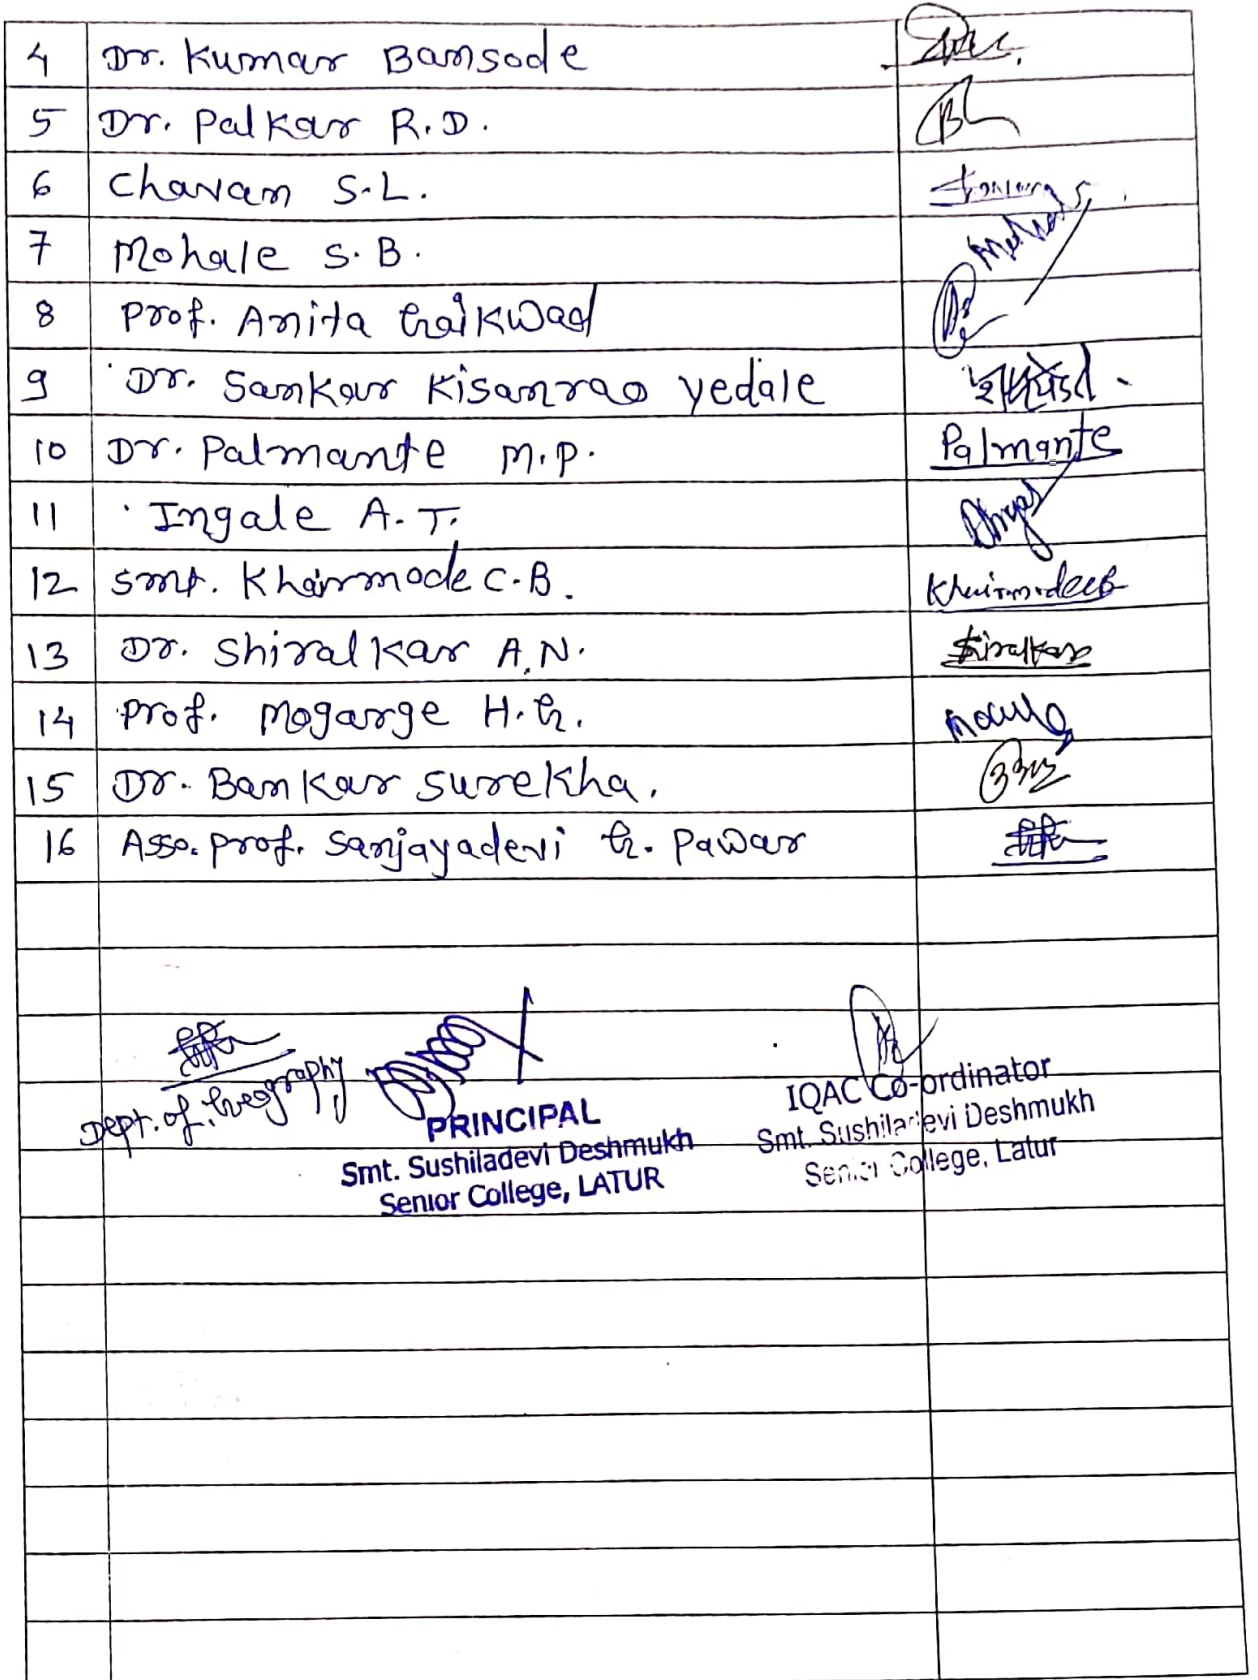 4 Dr. Kumar Bansode
5 Dr. Palkar R.D.
6 Chavan S.L.
7 Mohale S.B.
8 Prof. Anita Gaikwad
9 Dr. Sankar Kisanrao Yedale
10 Dr. Palmante M.P. Palmante
11 Ingale A.T.
12 Smt. Khairmode C.B.
13 Dr. Shiralkar A.N.
14 Prof. Mogarge H.G.
15 Dr. Bankar Surekha.
16 Asso. Prof. Sanjayadevi G. Pawar
Dept. of Geography
PRINCIPAL
Smt. Sushiladevi Deshmukh
Senior College, LATUR
IQAC Co-ordinator
Smt. Sushiladevi Deshmukh
Senior College, Latur